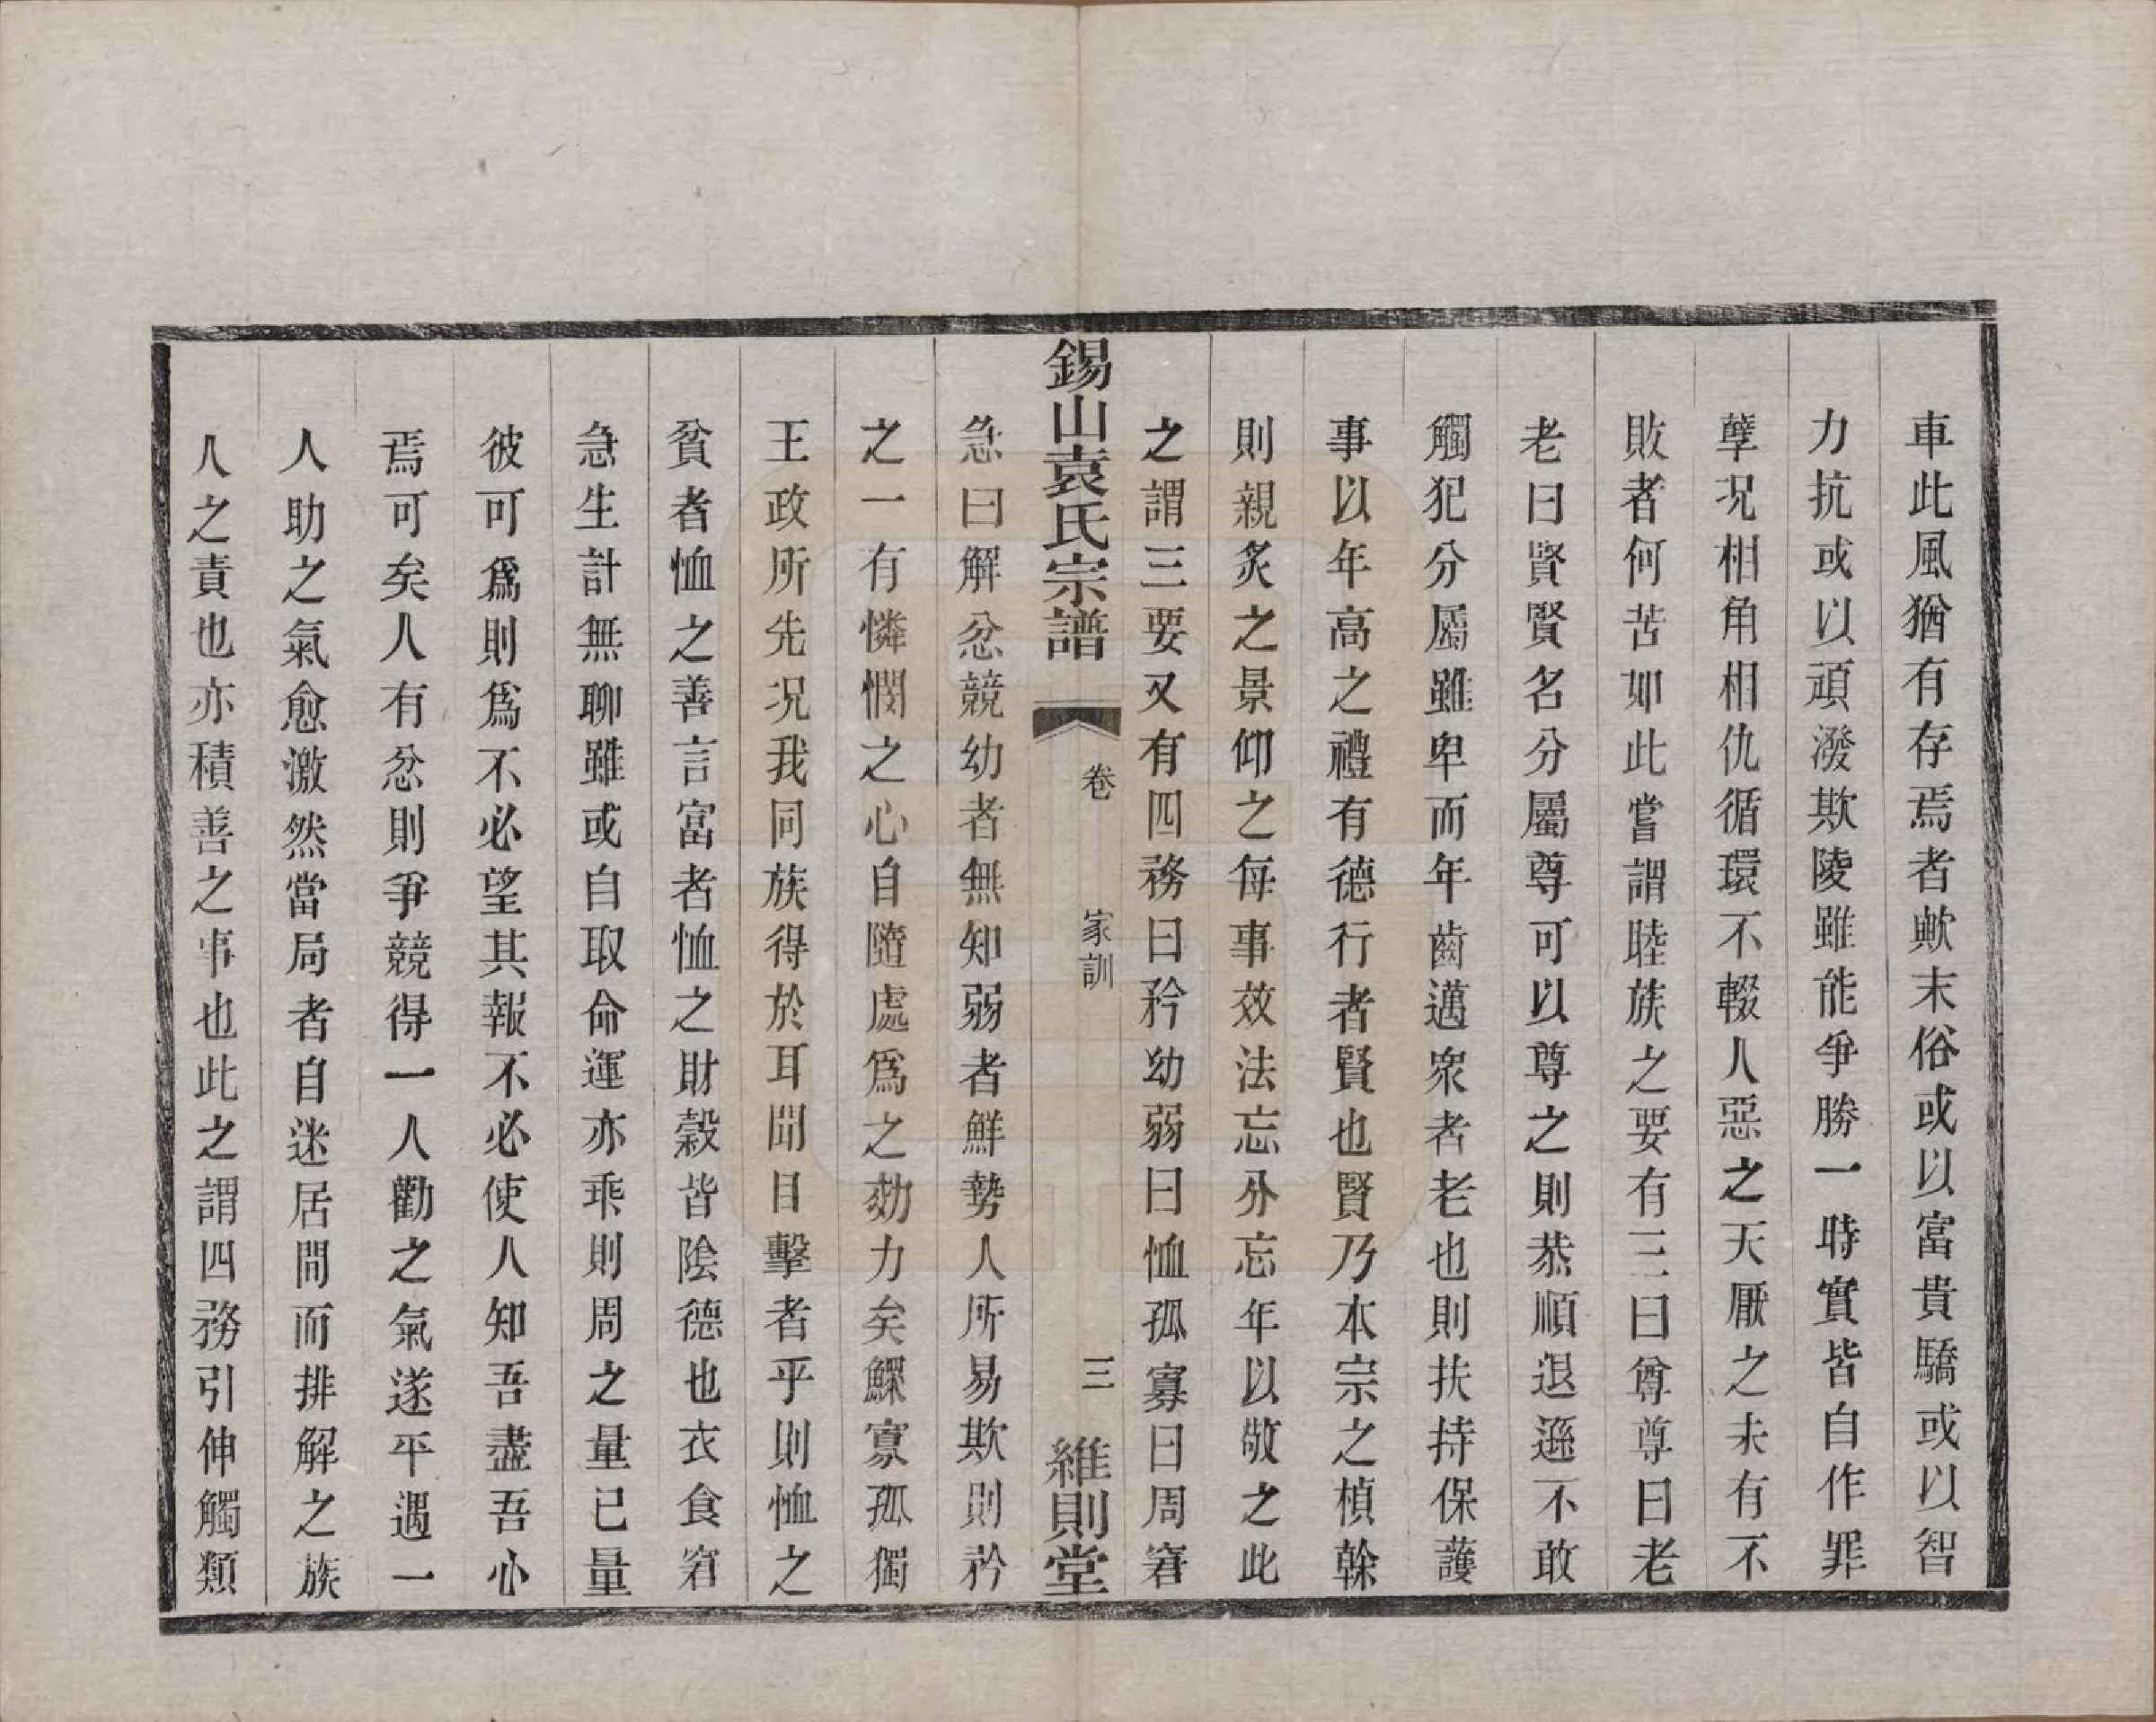 車此風猶有存焉者歟末俗或以富貴驕或以智
力抗或以頑潑欺陵雖能爭勝一時實皆自作罪
孽况相角相仇循環不輟人惡之天厭之未有不
敗者何苦如此嘗謂睦族之要有三曰尊尊曰老
老曰賢賢名分屬尊可以尊之則恭順退遜不敢
觸犯分屬雖卑而年齒邁衆者老也則扶持保護
事以年高之禮有德行者賢也賢乃本宗之楨榦
則親炙之景仰之每事效法忘分忘年以敬之此
之謂三要又有四務曰矜幼弱曰恤孤寡曰周窘
錫山袁氏宗譜 卷 家訓 三 維則堂
急曰解忿競幼者無知弱者鮮勢人所易欺則矜
之一有憐憫之心自隨處爲之効力矣鰥寡孤獨
王政所先况我同族得於耳聞目擊者乎則恤之
貧者恤之善言富者恤之財穀皆陰德也衣食窘
急生計無聊雖或自取命運亦乖則周之量已量
彼可爲則爲不必望其報不必使人知吾盡吾心
焉可矣人有忿則爭競得一人勸之氣遂平遇一
人助之氣愈激然當局者自迷居間而排解之族
人之責也亦積善之事也此之謂四務引伸觸類